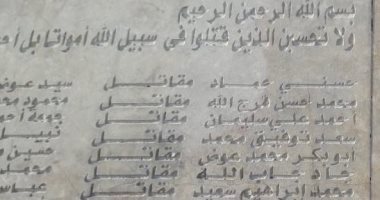 بسم الله الرحمن الرحيم
ولا تحسبن الذين قتلوا في سبيل الله أمواتا بل أحـ
حسني عماد مقاتل سيد عوض
محمد حسن فرج الله مقاتل محمود محمد
أحمد علي سليمان مقاتل جمعة أحمد
سعد توفيق محمد مقاتل نبيل
أبو بكر محمد عوض مقاتل حسين
جاد جاب الله مقاتل محمد
محمد إبراهيم سعيد مقاتل عباس